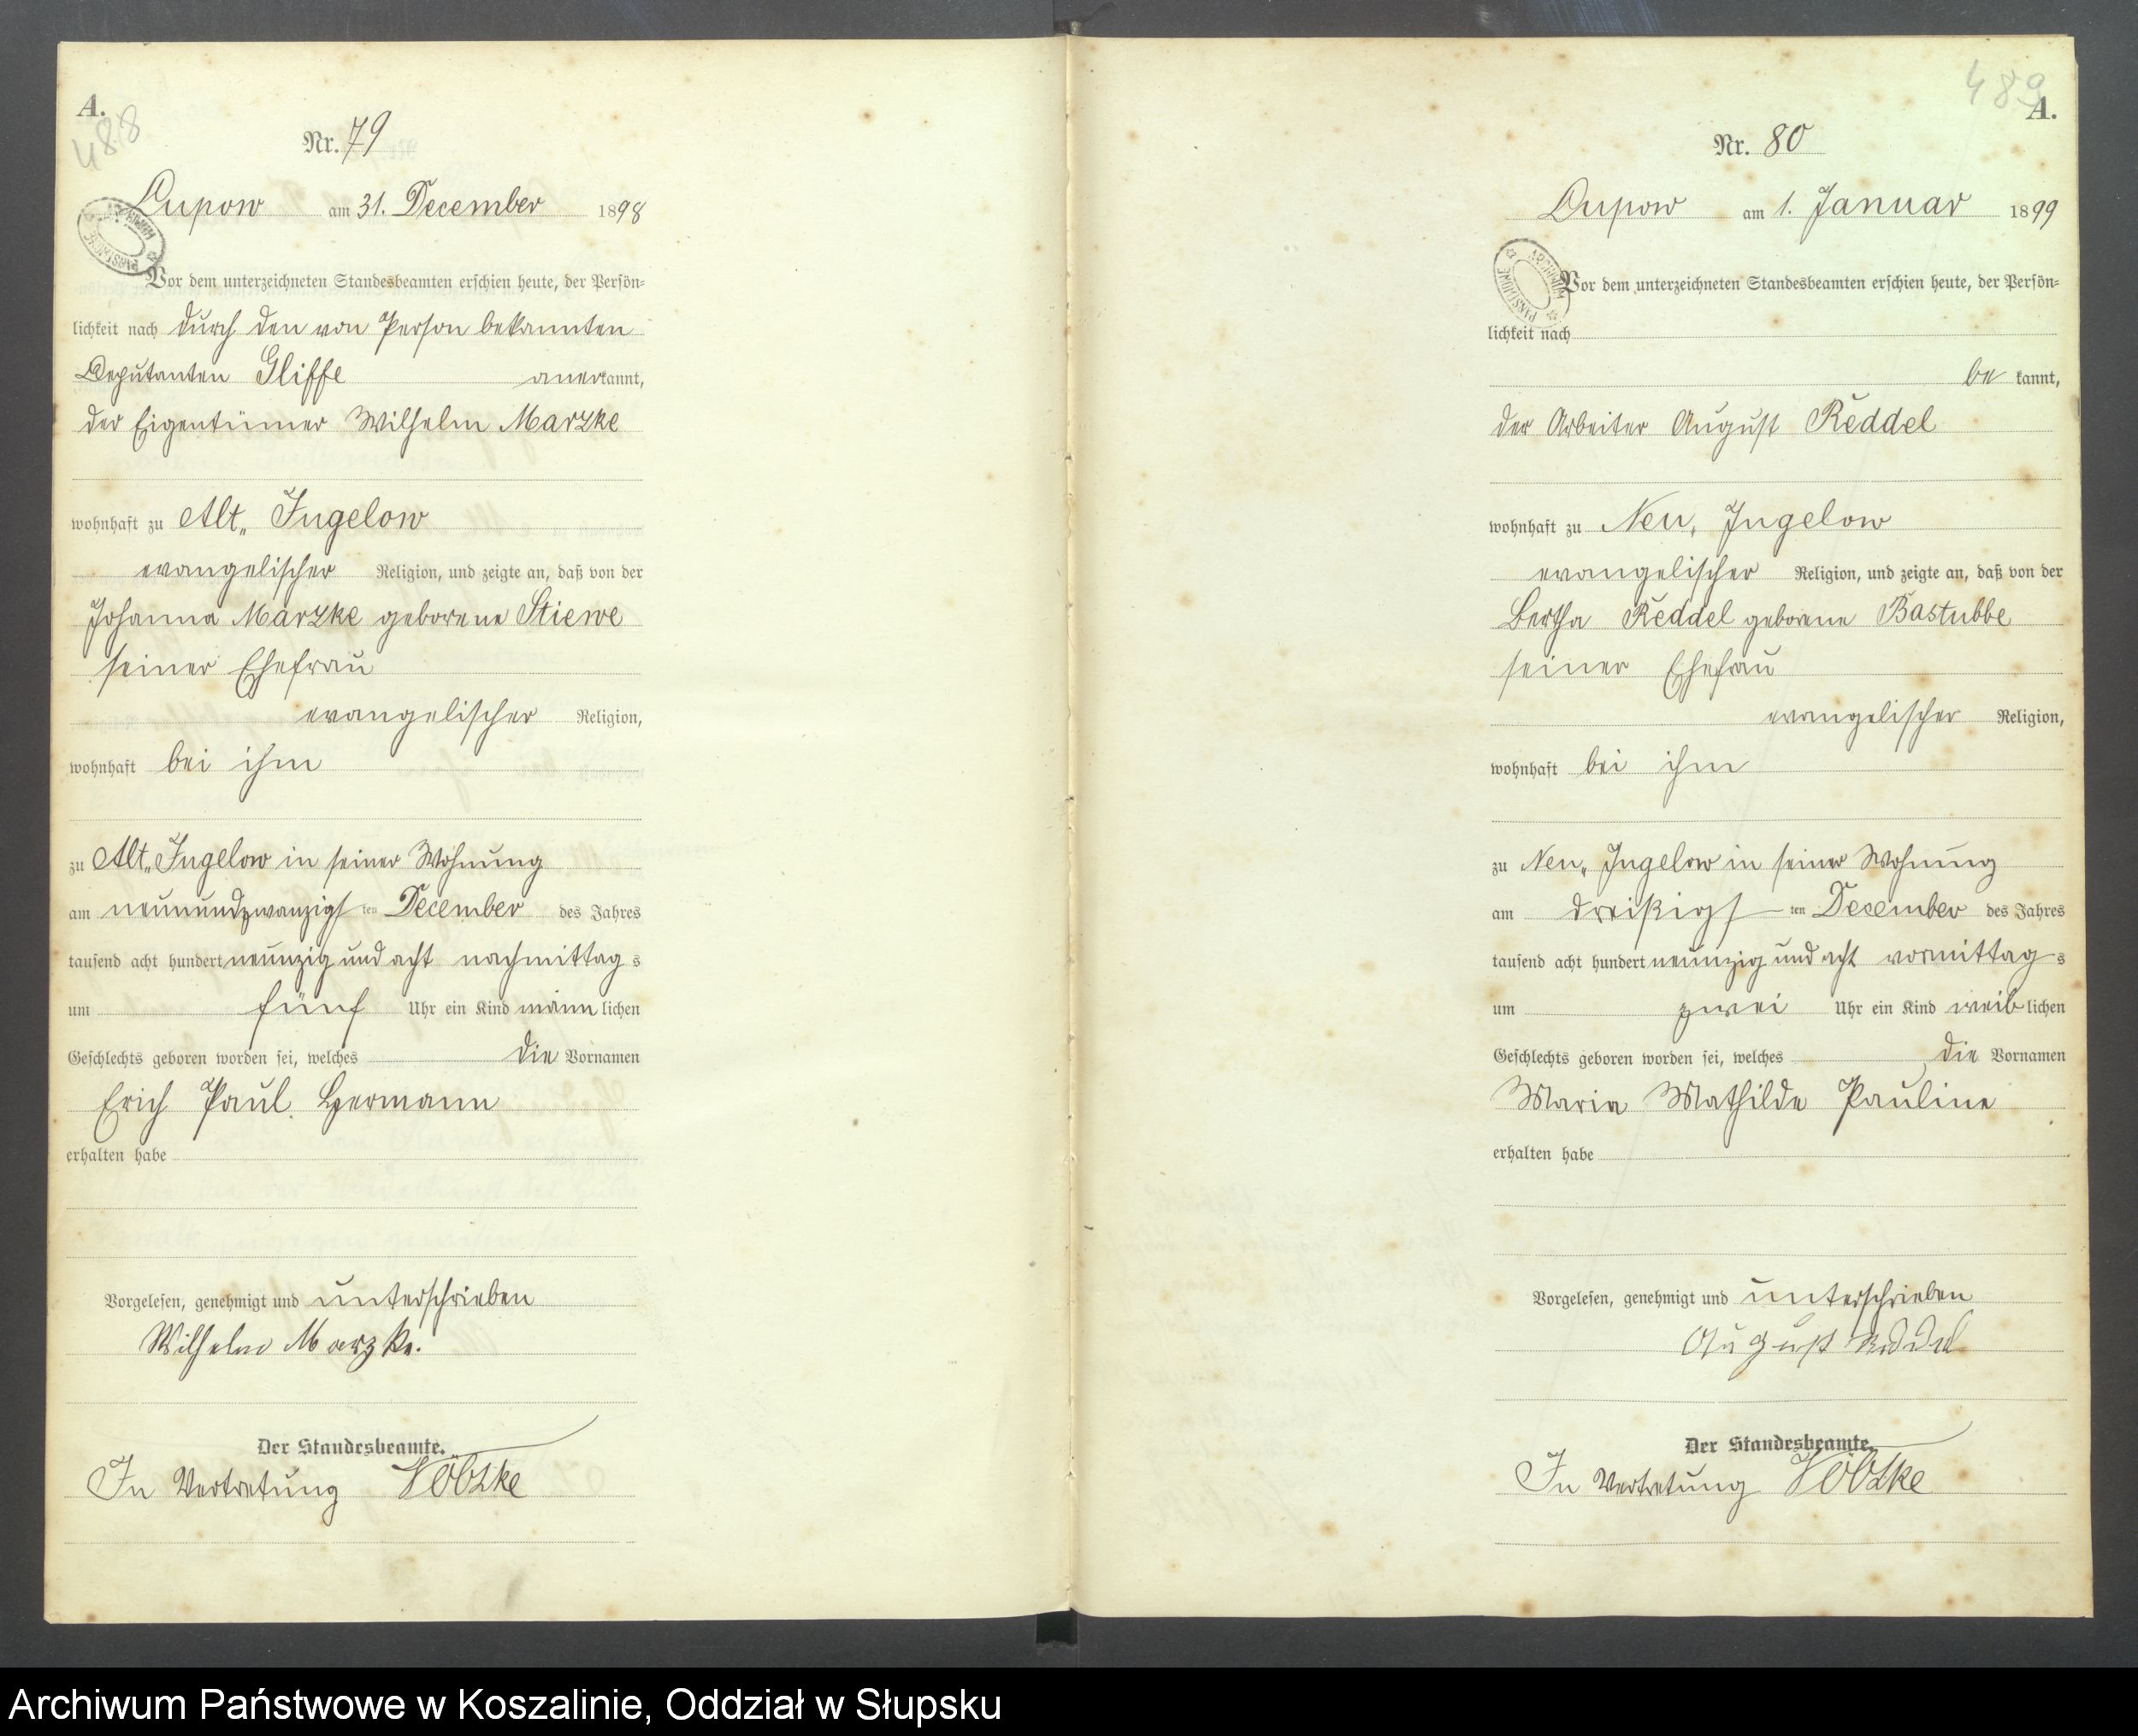 A.
488
Nr. 79
Lupow am 31. December 1898
Vor dem unterzeichneten Standesbeamten erschien heute, der Persön-
lichkeit nach durch den von Person bekannten
Deputanten Gliffe anerkannt,
der Eigentümer Wilhelm Marzke
wohnhaft zu Alt„ Jugelow
evangelischer Religion, und zeigte an, daß von der
Johanna Marzke geborene Stiewe
seiner Ehefrau
evangelischer Religion,
wohnhaft bei ihm
zu Alt„ Jugelow in seiner Wohnung
am neunundzwanzigsten December des Jahres
tausend acht hundert neunzig und acht nachmittags
um fünf Uhr ein Kind männlichen
Geschlechts geboren worden sei, welches die Vornamen
Erich Paul Hermann
erhalten habe
Vorgelesen, genehmigt und unterschrieben
Wilhelm Marzke.
Der Standesbeamte.
In Vertretung
489
A.
Nr. 80
Lupow am 1. Januar 1899
Vor dem unterzeichneten Standesbeamten erschien heute, der Persön-
lichkeit nach
be kannt,
der Arbeiter August Reddel
wohnhaft zu Neu„ Jugelow
evangelischer Religion, und zeigte an, daß von der
Bertha Reddel geborene Bastubbe
seiner Ehefrau
evangelischer Religion,
wohnhaft bei ihm
zu Neu„ Jugelow in seiner Wohnung
am dreißigsten December des Jahres
tausend acht hundert neunzig und acht vormittags
um zwei Uhr ein Kind weiblichen
Geschlechts geboren worden sei, welches die Vornamen
Maria Mathilde Pauline
erhalten habe
Vorgelesen, genehmigt und unterschrieben
August Reddel
Der Standesbeamte.
In Vertretung
ARCHIWUM PAŃSTWOWE
Archiwum Państwowe w Koszalinie, Oddział w Słupsku